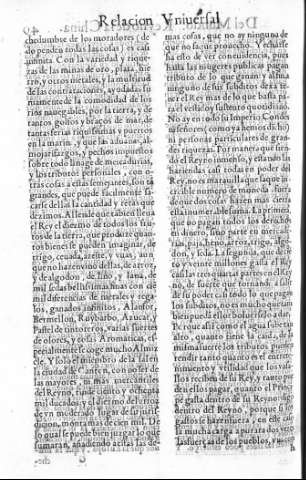 Relacion Vniuersal
chedumbre de los moradores (de
do penden todas las cosas) es casi
infinita. Con la variedad y rique-
zas de las minas de oro, plata, hie-
rro, y otros metales, y la multitud
de las contrataciones, ayudadas su
mamente de la comodidad de los
rios nauegables, por la tierra, y de
tantos golfos y braços de mar, de
tantas ferias riquissimas y puertos
en la marina, y que las aduanas, al-
mojarifazgos, y pechos impuestos
sobre todo linage de mercadurias,
y los tributos personales, con o-
tras cosas a estas semejantes, son tā
grandes, que puede facilmente sa-
carse dellas la cantidad y rētas que
dezimos. Allende que tābien lleua
el Rey el diezmo de todos los fru-
tos de la tierra, que produze quan-
tos bienes se pueden imaginar, de
trigo, ceuada, azeite, y vuas, aun-
que no hazen vino dellas, de arroz,
y de algodon, de lino, y lana, de
mil sedas bellissimas
mil diferencias de metales y rega-
los, ganados infinitos, Alanfor
Bermellon, Ruybarbo, Açucar, y
Pastel de tintoreros, varias suertes
de olores, y cosas Aromaticas, es-
pecialmente se coge mucho Almiz
cle, y solo el miembro de la sal en
la ciudad de Canten, con no ser de
las mayores, ni mas mercantiles
del Reyno, rinde ciento y ochenta
mil ducados y el diezmo del arroz
de vn moderado lugar de su juris-
dicion, monta mas de cien mil. De
lo qual se puede bien juzgar lo que
sumaràn, añadiendo a estas las de-
mas cosas, que no ay ninguna de
que no saque prouecho. Y echase
ella ello de ver claramente, pues
hasta las mugeres publicas pagan
tributo de lo que ganan y asi a
ninguno de sus subditos dexa te-
ner el Rey mas de lo que basta pa-
ra el vestido y sustento quotidiano.
No ay en todo su Imperio Condes
o señores (como ya hemos dicho)
ni personas particulares de gran-
des riquezas. Por manera que sien-
do el Reyno inmenso, y estando las
haziendas casi todas en poder del
Rey, no es marauilla que saque in-
creible numero de moneda
de que dos cosas hazen mas cierta
esta inumerable suma. La primera
que no pagan todos los derechos
en dinero, sino parte en mercadu-
rias, paja, heno, arroz, trigo, algo-
don, y seda. La segunda, que de cie-
to y veinte millones gasta el Rey
casi las tres quartas partes en el Rey-
no, de suerte que tornando a salir
de su poder casi todo lo que pagan
los subditos, no es mucho que tam-
bien pueda ello boluerselo a dar.
Porque asi como el agua sube tan
alto, quanto tiene la caida, de la
misma suerte los tributos pueden
rendir tanto quanto es el comodi-
miento y vtilidad que los vassa-
llos reciben de su Rey, y tanto pue-
den ellos pagar, quanto el Principe
gasta dentro de su Reyno
dentro del Reyno, porque si los
gastos se hazen fuera, en este caso
la mucha carga apura
las fuerças de los pueblos, y